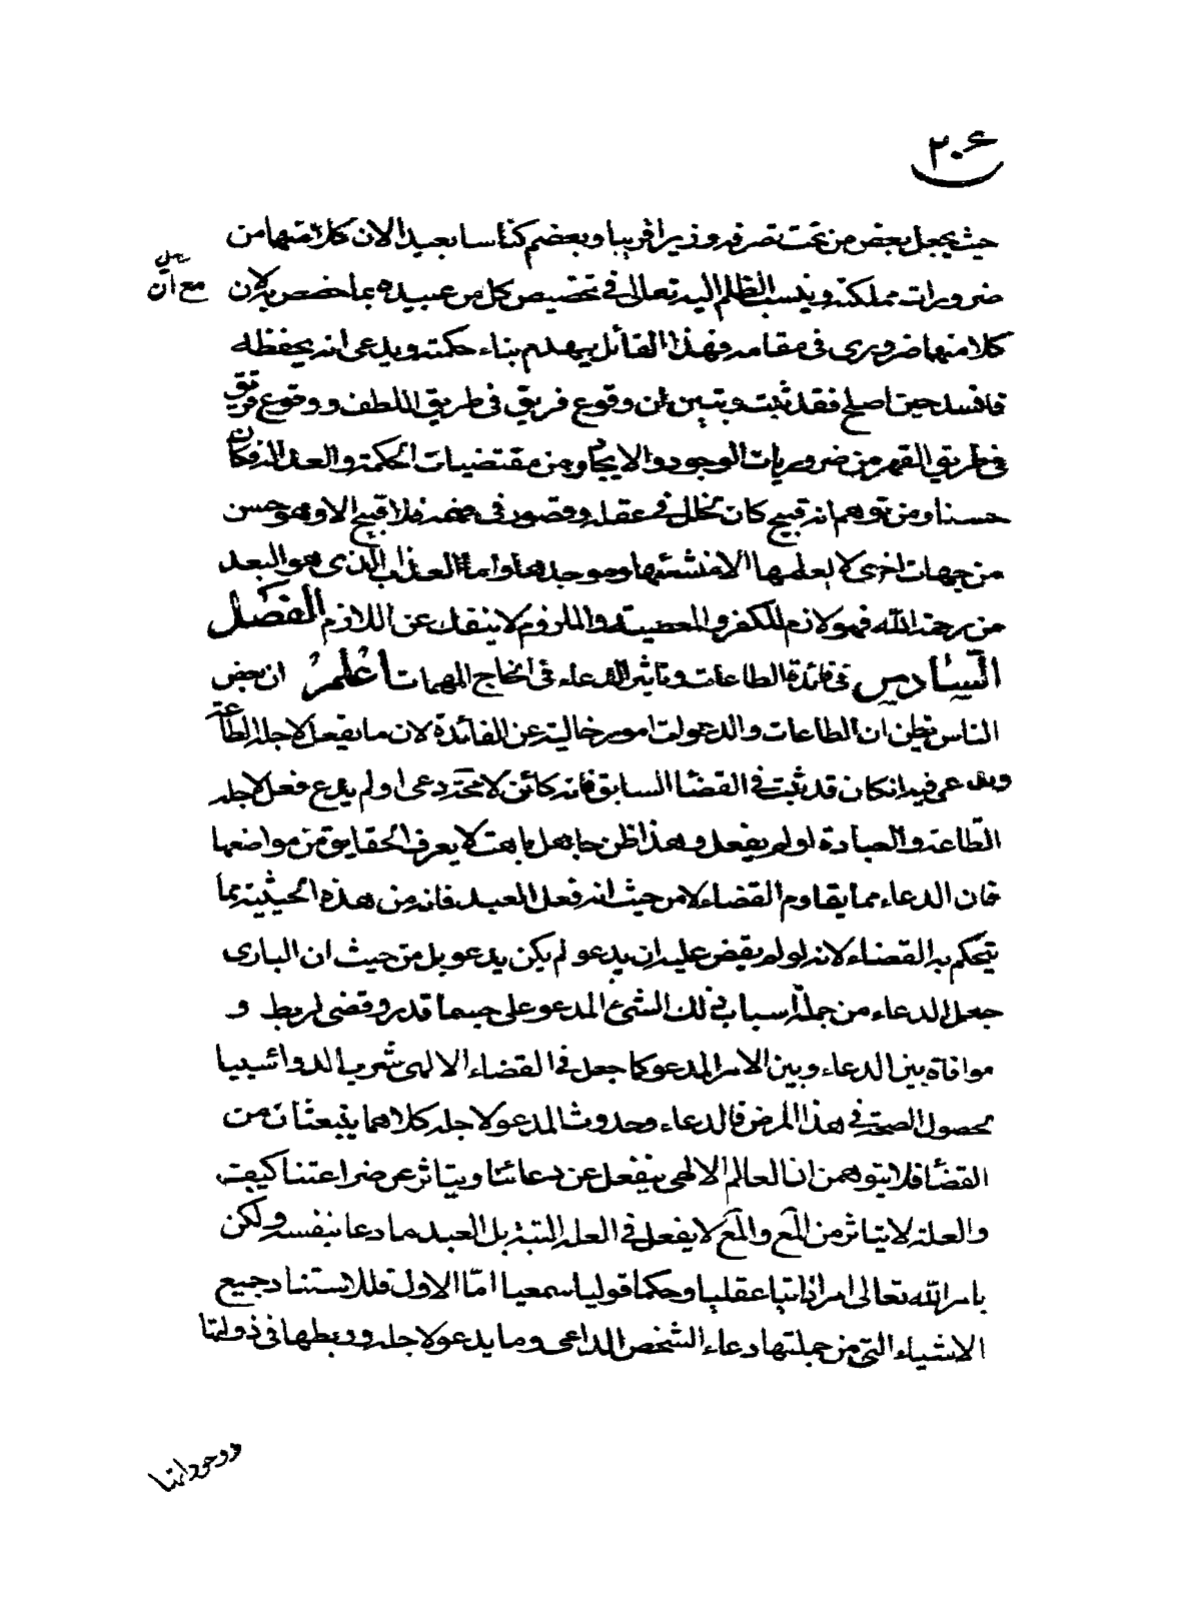 ٢٠٦
حيث يجعل بعض من تحت تصرفه وزيرا قريبا وبعضهم كناسا بعيدا لان كلا منهما من
ضرورات مملكته وينسب الظلم اليه تعالى في تخصيص كل من عبيده بما خصص به لان
مع ان
كلا منهما ضروري في مقامه فهذا القائل يهدم بناء حكمته ويدعى انه يحفظه
فافسد حين اصلح فقد ثبت وتبين ان وقوع فريق في طريق اللطف ووقوع فريق
في طريق القهر من ضروريات الوجود والايجاد ومن مقتضيات الحكمة والعدالة فكان
حسنا ومن توهم انه قبيح كان لخلل في عقله وقصور في فهمه فلا قبيح الا وهو حسن
من جهات اخرى لا يعلمها الا منشئها وموجدها واما العذاب الذى هو البعد
من رحمة الله فهو لازم للكفر والمعصية والملزوم لا ينفك عن اللازم الفصل
السادس في فائدة الطاعات وتاثير الدعاء في انجاح المهمات اعلم ان بعض
الناس يظن ان الطاعات والدعوات امور خالية عن الفائدة لان ما يفعل لاجله الطاعة
ويدعى فيه ان كان قد ثبت في القضا السابق فانه كائن لا محة دعى او لم يدع فعل لاجله
الطاعة والعبادة او لم يفعل وهذا ظن جاهل باهت لا يعرف الحقايق من مواضعها
فان الدعاء مما يقاوم القضاء لا من حيث انه فعل العبد فانه من هذه الحيثية مما
يتحكم به القضاء لانه لو لم يقض عليه ان يدعو لم يكن يدعو بل من حيث ان البارى
جعل الدعاء من جملة اسباب ذلك الشئ المدعو على حسبما قدر وقضى لربط و
موافاة بين الدعاء وبين الامر المدعو كما جعل في القضاء الالهى شرب الدوا سببا
لحصول الصحة في هذا المرض فالدعاء وحدوث المدعو لاجله كلاهما ينبعثان من
القضا فلا يتوهمن ان العالم الالهى ينفعل عن دعائنا ويتاثر عن ضراعتنا كيف
والعلة لا يتاثر من المع والمع لا يفعل في العلة البتة بل العبد ما دعا بنفسه ولكن
بامر الله تعالى امرا ذاتيا عقليا وحكما قوليا سمعيا اما الاول فللاستناد جميع
الاشياء التي من جملتها دعاء الشخص الداعى وما يدعو لاجله وربطها في ذواتها
ووجوداتها